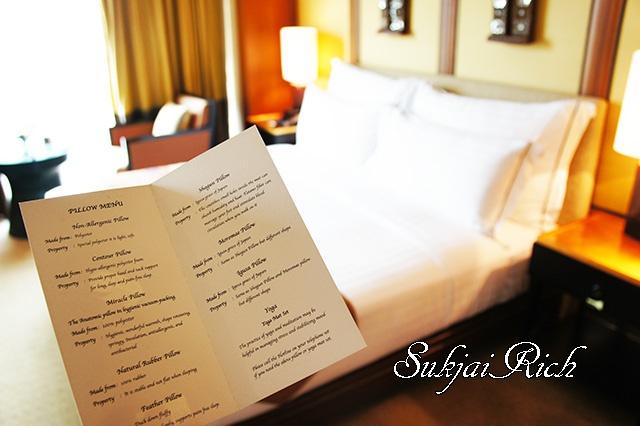 PILLOW MENU
Non-Allergenic Pillow
Made from: Polyester
Property : Special polyester it is light, soft.
Contour Pillow
Made from: Hypo-allergenic polyester foam.
Property : Provide proper head and neck support
for long, deep and pain-free sleep.
Miracle Pillow
The Anatomic pillow in hygienic vacuum-packing.
Made from: 100% polyester
Property : Hygienic, wonderful warmth, shape retaining,
springy, Insulation, antiallergenic, and
antibacterial
Natural Rubber Pillow
Made from : 100% rubber
Property : It is stable and not flat when sleeping
Feather Pillow
Duck down fluffy
Shogun Pillow
Made from : Igusa grass of Japan
Property :
circulation when you walk on it
Made from : Igusa grass of Japan
Property : Same as Shogun Pillow but different shape
Igusa Pillow
Made from : Igusa grass of Japan
Property : Same as Shogun Pillow and Moremos pillow
but different shape
Yoga
Yoga Mat Set
The practice of yoga and meditation may be
helpful in managing stress and stabilizing mood
Please call the Hotline on your telephone set
if you need the above pillow or yoga mat set.
Sukjai Rich